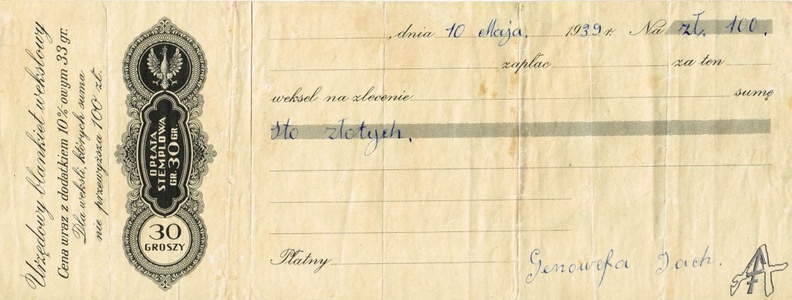 Urzędowy blankiet wekslowy
Cena wraz z dodatkiem 10%-owym 33 gr.
Dla weksli, których suma
nie przewyższa 100 zł.
OPŁATA
STEMPLOWA
GR. 30 GR.
30
GROSZY
, dnia 10 Maja. 1939 r. Na zł. 100.
zapłac za ten
weksel na zlecenie sumę
Sto złotych.
Płatny
Genowefa Jach.